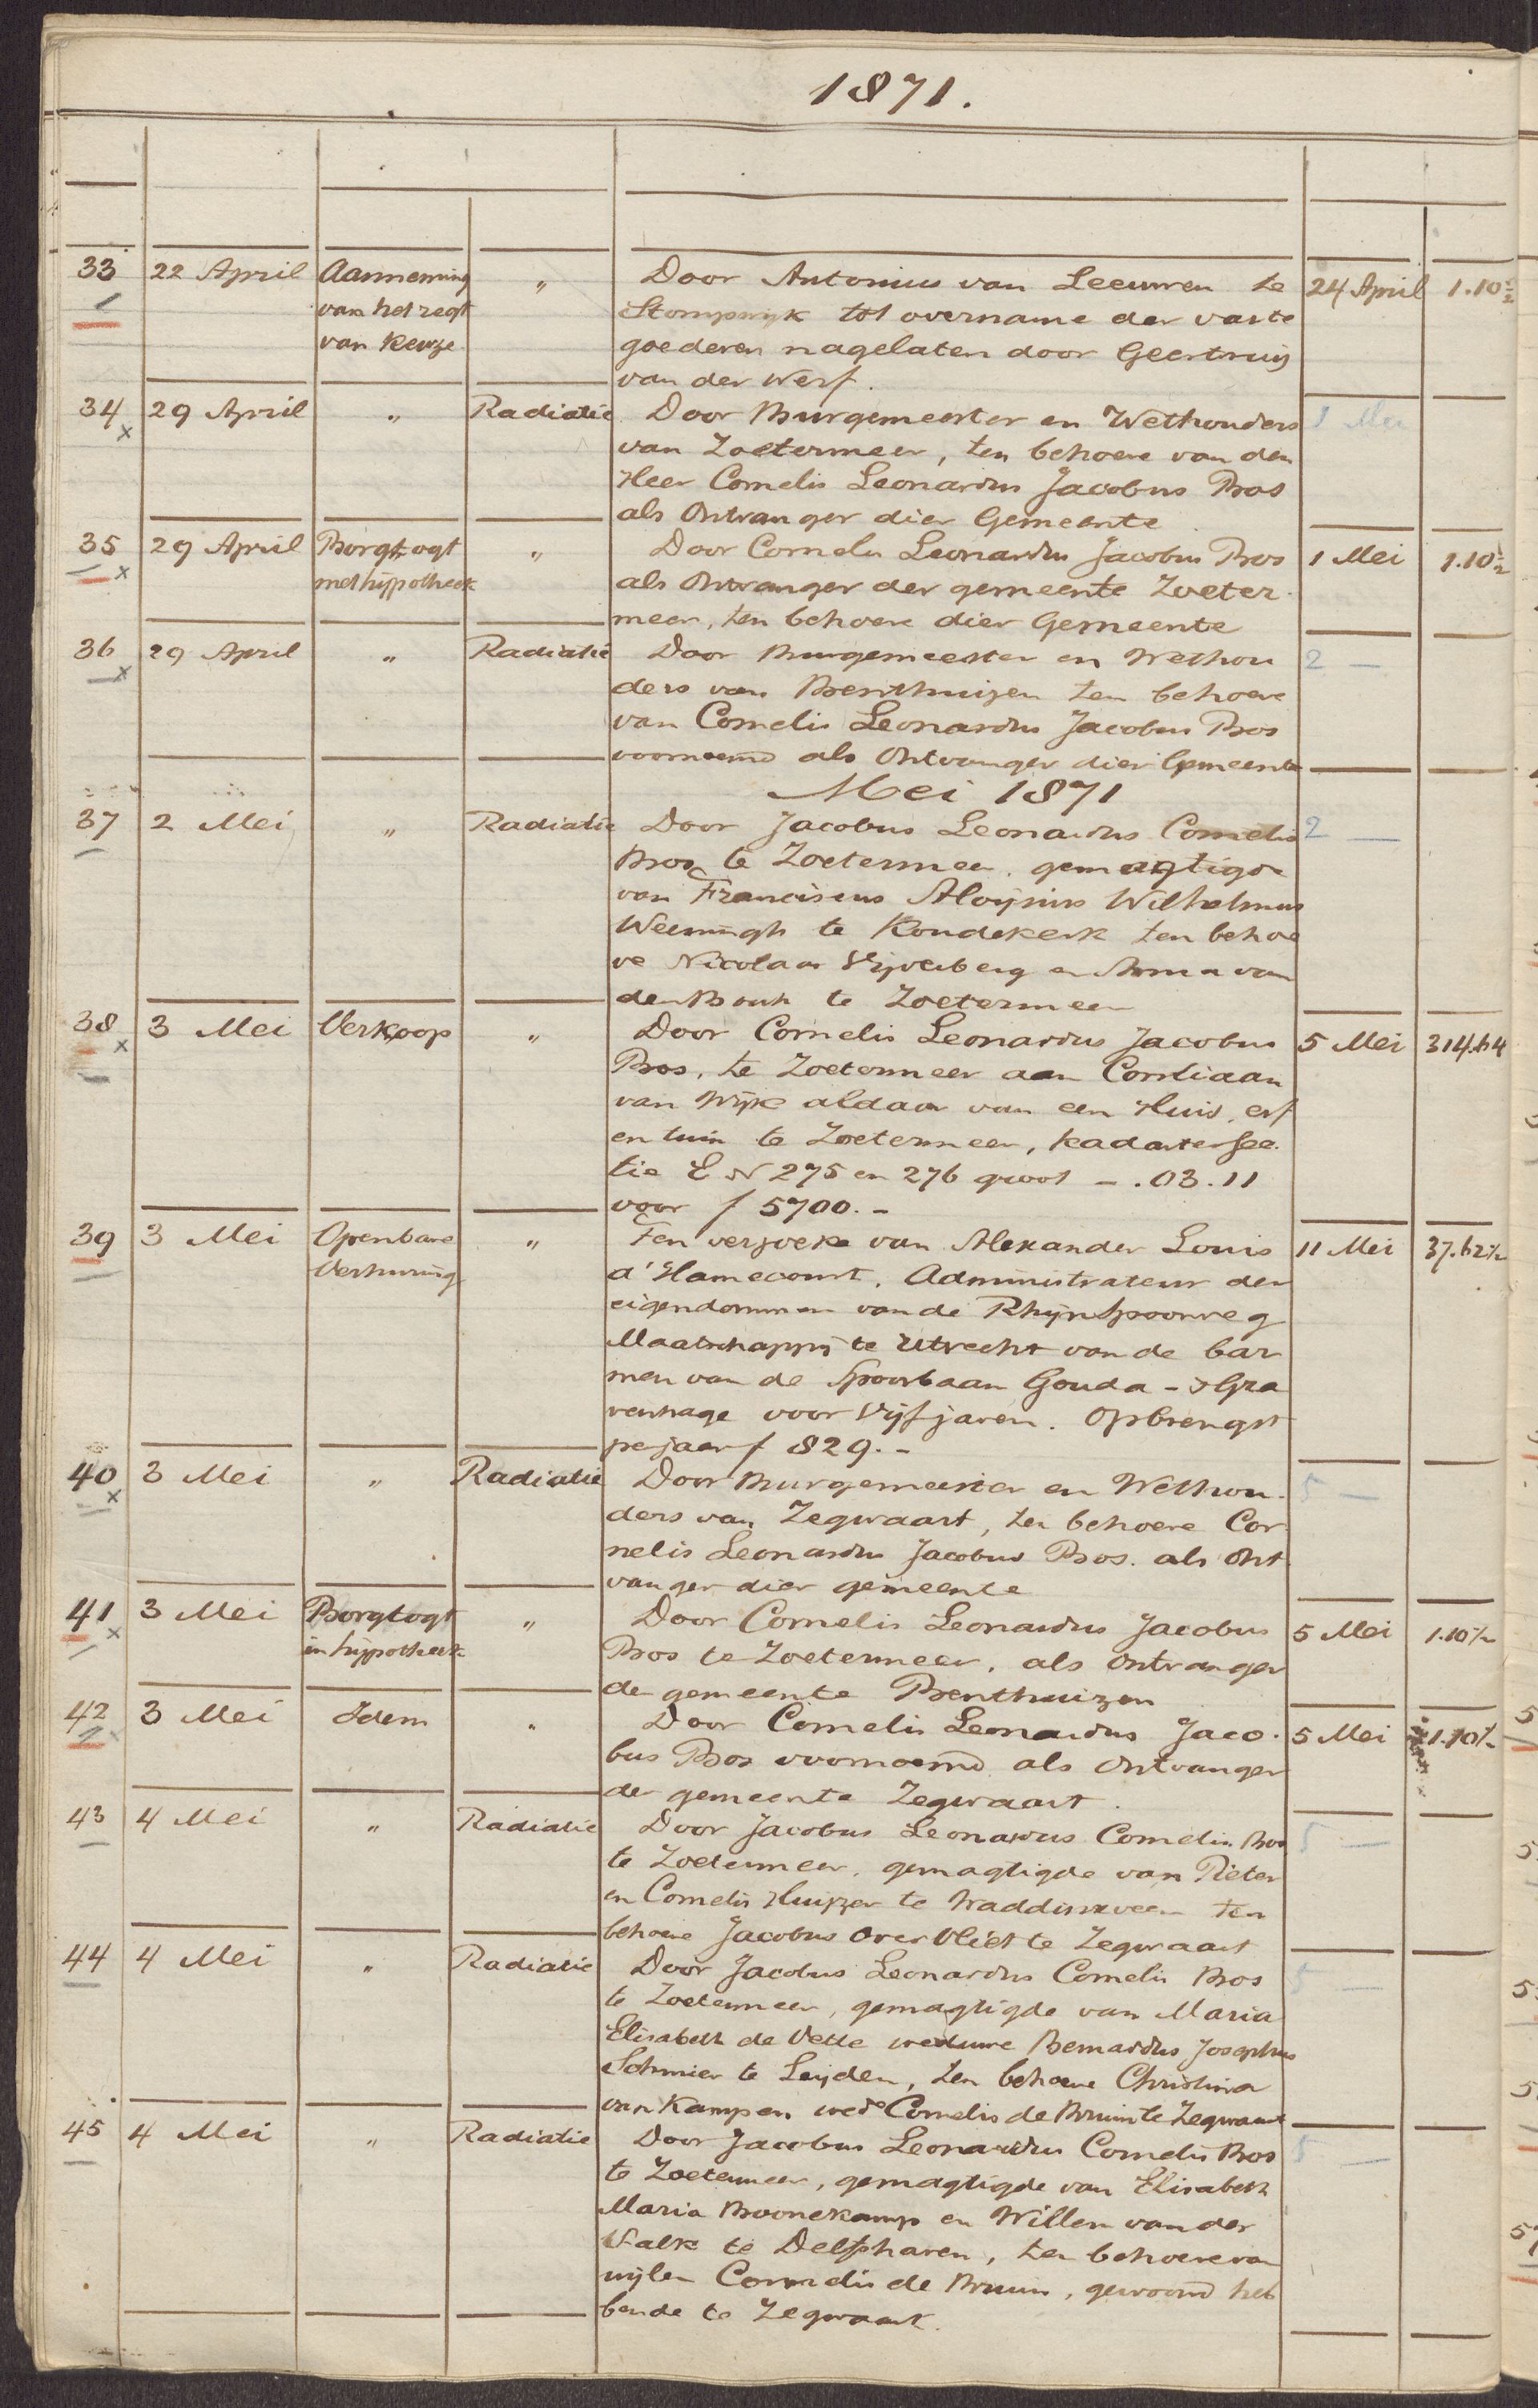 1871.
33 22 April Aanneming " Door Antonius van Leeuwen te 24 April 1.10½
van het regt Stompwijk tot overname der vaste
van Keuze goederen nagelaten door Geertruij
van der Werf.
34 29 April " Radiatie Door Burgemeester en Wethouders 1 Mei
van Zoetermeer, ten behoeve van den
Heer Cornelis Leonardus Jacobus Bos
als Ontvanger dier Gemeente
35 29 April Borgtogt " Door Cornelis Leonardus Jacobus Bos 1 Mei 1.10½
met hijpotheek als Ontvanger der gemeente Zoeter
meer, ten behoeve dier Gemeente
36 29 April " Radiatie Door Burgemeester en Wethou 2 —
ders van Benthuizen ten behoeve
van Cornelis Leonardus Jacobus Bos
voornoemd als Ontvanger dier Gemeente
Mei 1871
37 2 Mei " Radiatie Door Jacobus Leonardus Cornelis 2 —
Bos te Zoetermeer, gemagtigde
van Franciscus Aloijsius Wilhelmus
te Koudekerk ten behoe
ve Nicolaas Vijverberg en Anna van
den Bosch te Zoetermeer
38 3 Mei Verkoop " Door Cornelis Leonardus Jacobus 5 Mei 314.64
Bos, te Zoetermeer aan Corstiaan
van Wijk aldaar van een Huis, erf
en tuin te Zoetermeer, kadaster sec
tie E N 275 en 276 groot - .03.11
voor f 5700.-
39 3 Mei Openbare " Ten verzoeke van Alexander Louis 11 Mei 37.62½
Verhuring d'Hamecourt, Administrateur der
eigendommen van de Rhijnspoorweg
Maatschappij te Utrecht van de bar
men van de Spoorbaan Gouda - 'sGra
venhage voor Vijf jaren. Opbrengst
per jaar f 829.-
40 3 Mei " Radiatie Door Burgemeester en Wethou- 5 —
ders van Zegwaart, ten behoeve Cor
nelis Leonardus Jacobus Bos. als Ont
vanger dier gemeente
41 3 Mei Borgtogt " Door Cornelis Leonardus Jacobus 5 Mei 1.10½
in hijpotheek Bos te Zoetermeer, als Ontvanger
de gemeente Benthuizen
42 3 Mei Idem " Door Cornelis Leonardus Jaco- 5 Mei 1.10½
bus Bos voornoemd als Ontvanger
der gemeente Zegwaart.
43 4 Mei " Radiatie Door Jacobus Leonardus Cornelis Bos 5 —
te Zoetermeer, gemagtigde van Pieter
en Cornelis Huijzer te Waddinxveen ten
behoeve Jacobus Overvliet te Zegwaart
44 4 Mei " Radiatie Door Jacobus Leonardus Cornelis Bos 5 —
te Zoetermeer, gemagtigde van Maria
Elisabeth de Vette weduwe Bernardus Josephus
Schmier te Leijden, ten behoeve Christina
van Kampen wede Cornelis de Bruin te Zegwaart
45 4 Mei " Radiatie Door Jacobus Leonardus Cornelis Bos 5 —
te Zoetermeer, gemagtigde van Elisabeth
Maria Boonekamp en Willem van der
Valk te Delfshaven, ten behoeve van
wijlen Cornelis de Bruin, gewoond heb
bende te Zegwaart.